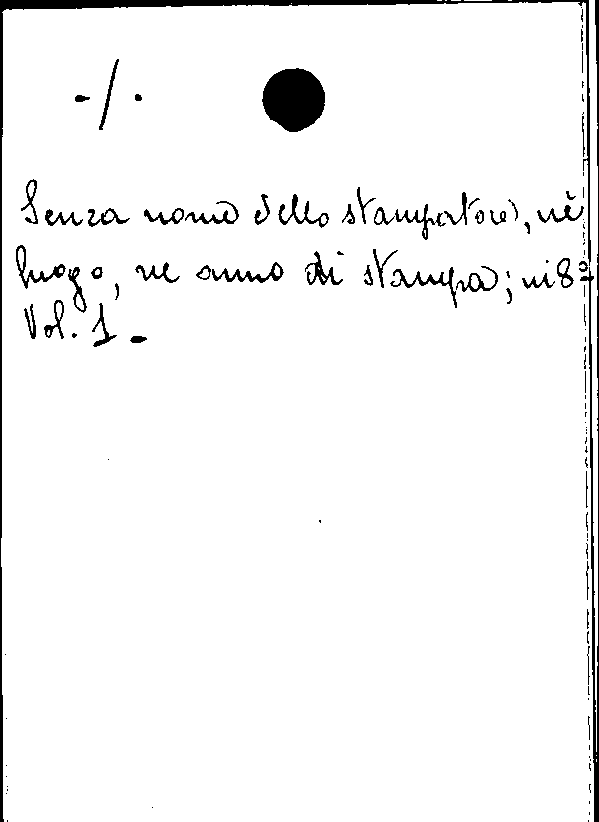 -/.
Senza nome dello stampatore, nè
luogo, ne anno di stampa; in 8º
Vol. 1.